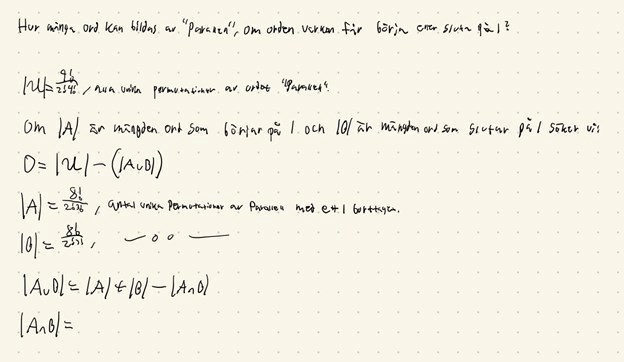 Hur många ord kan bildas av "Parallell", om orden varken får börja eller sluta på l?
|U| = 9!/, alla unika permutationer av ordet
Om |A| är mängden ord som börjar på l och |B| är mängden ord som slutar på l söker vi:
O = |U| - (|A∪B|)
|A| = 8!/, antal unika permutationer av med ett l borttagen.
|B| = 8!/,
|A∪B| = |A| + |B| - |A∩B|
|A∩B| =